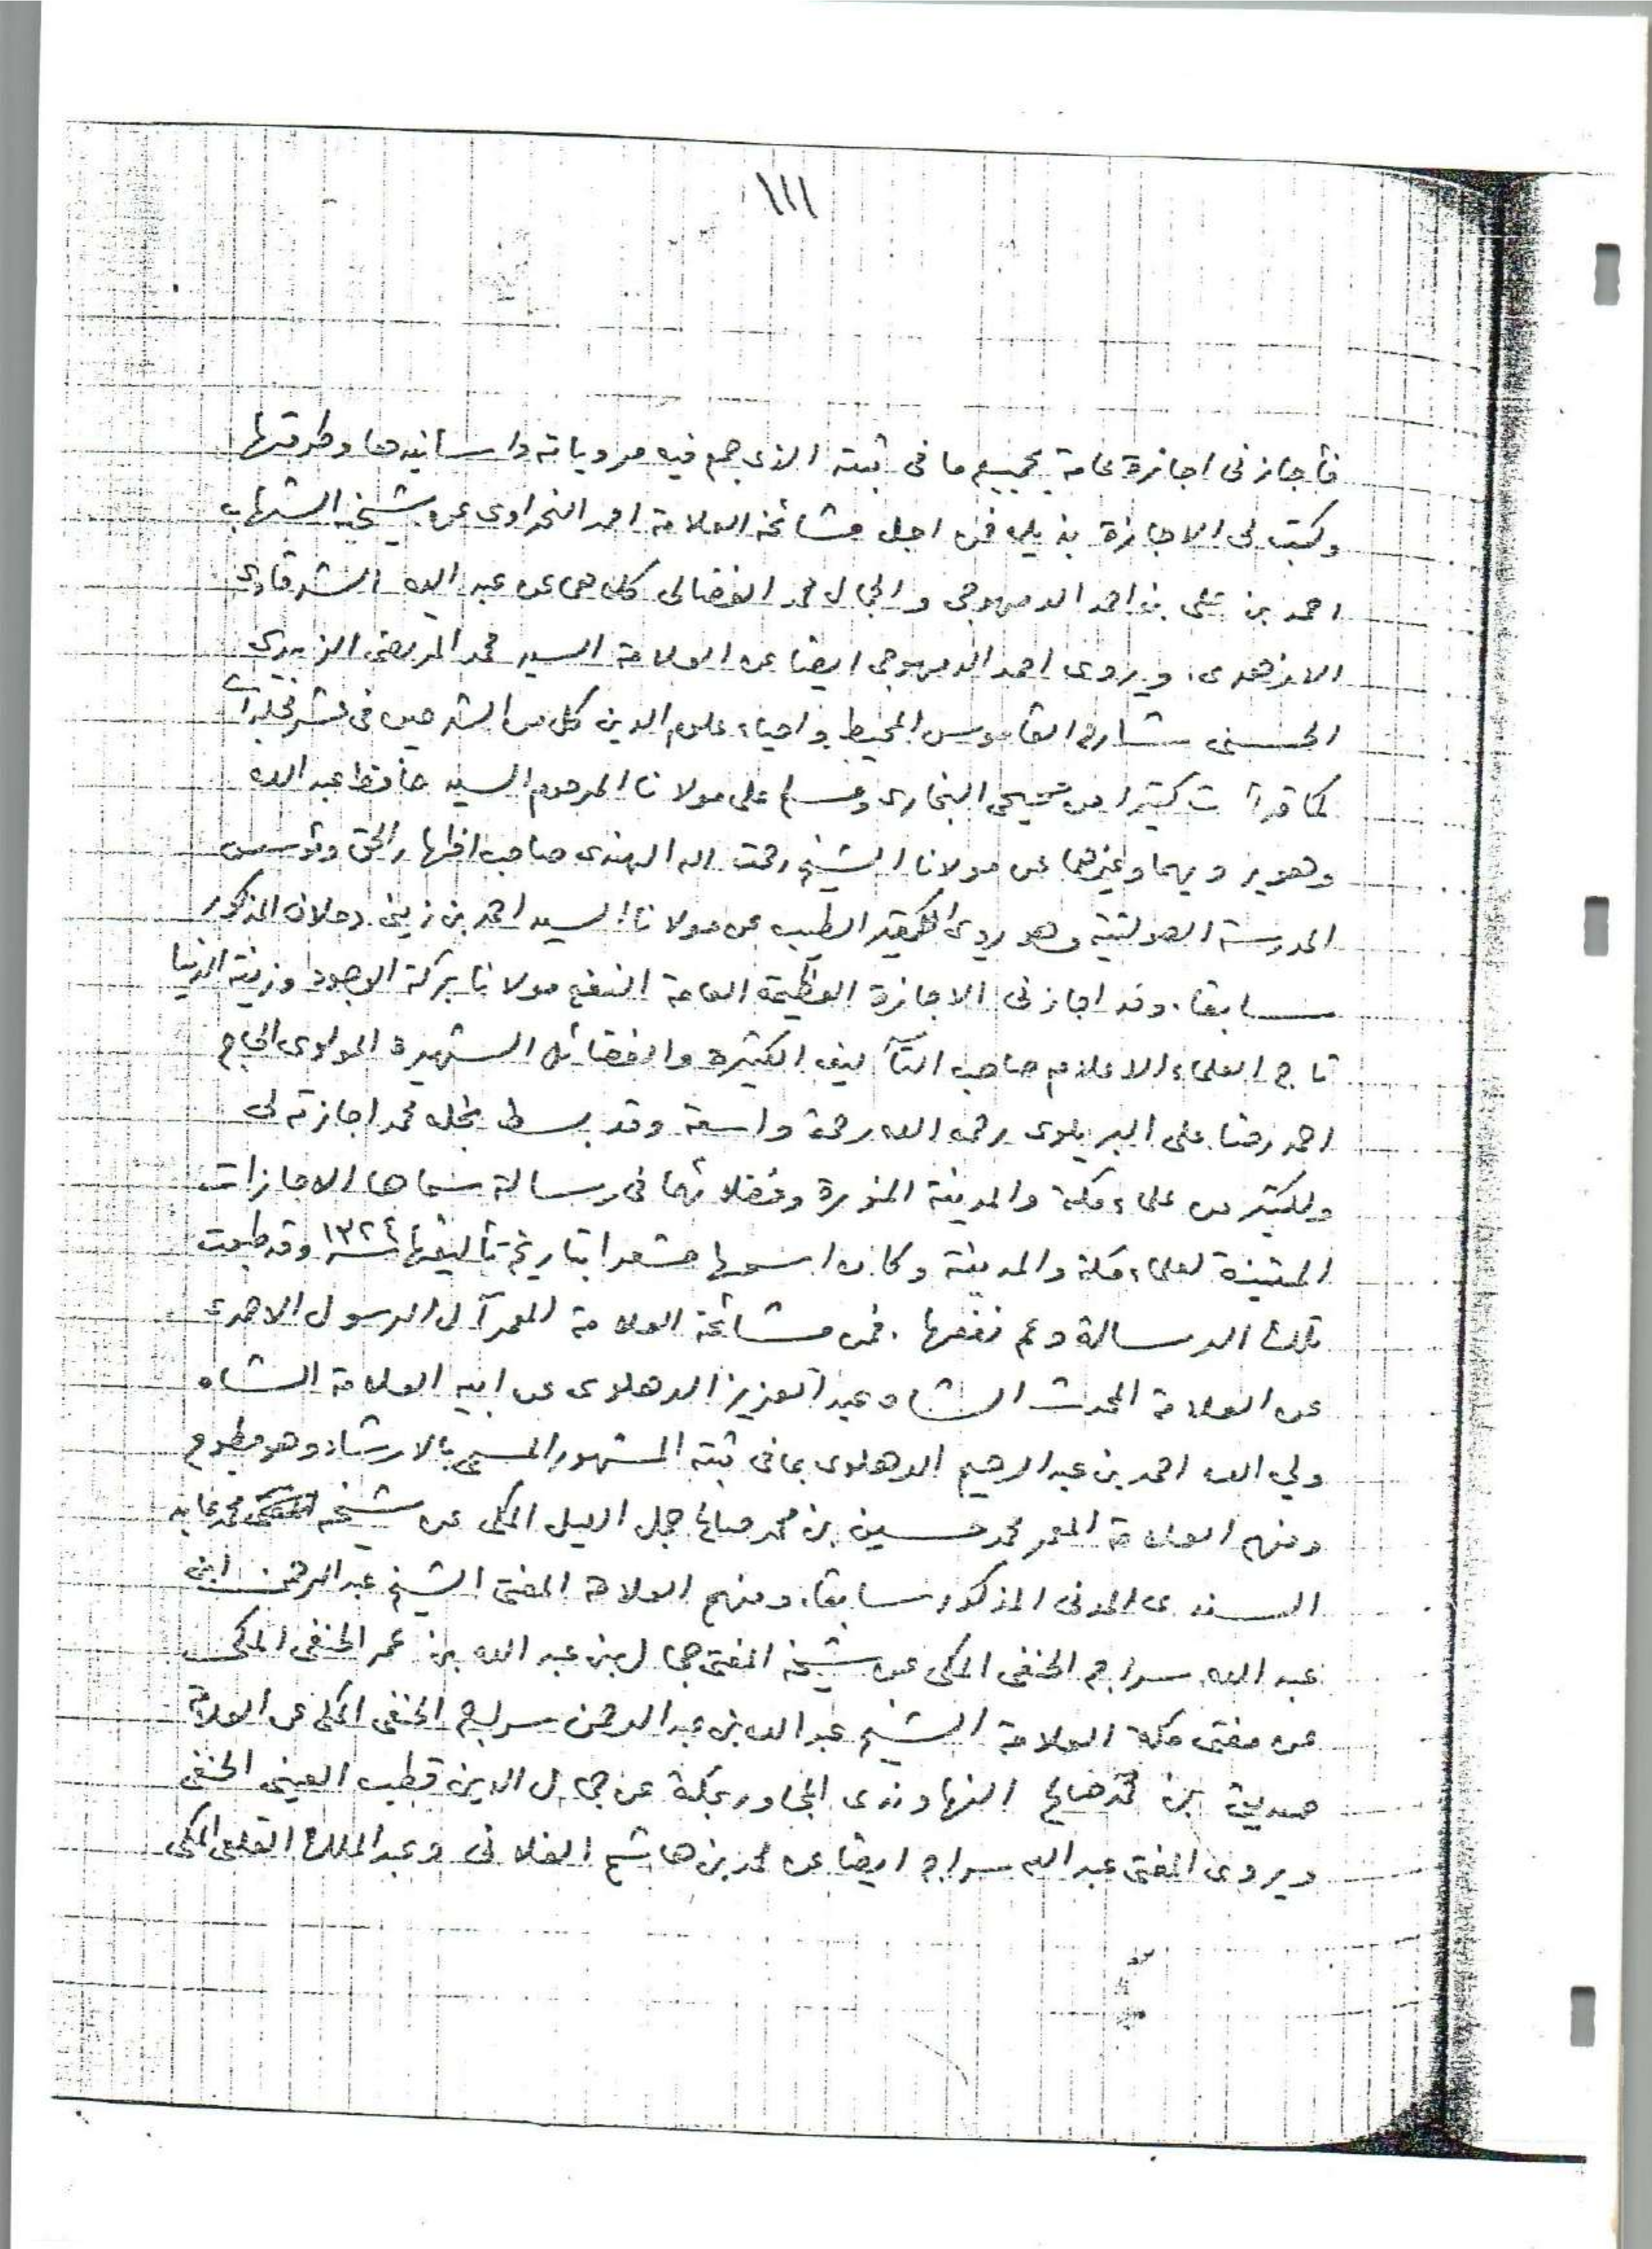 ١١١
فأجازنى اجازة عامة بجميع ما فى ثبته الذى جمع فيه مروياته واسانيدها وطرقها
وكتب لى الاجازة بذيله فمن اجل مشائخه العلامة احمد النحراوى عن شيخيه الشهاب
احمد بن على بن احمد الدمهوجى والجمال محمد الفضالى كلاهما عن عبد الله الشرقاوى
الازهرى. ويروى احمد الدمهوجى ايضا عن العلامة السيد محمد المرتضى الزبيدى
الحسينى شارح القاموس المحيط واحياء علوم الدين كل من الشرحين فى عشر مجلدات
كما قرأت كثيرا من صحيحى البخارى ومسلم على مولانا المرحوم السيد حافظ عبد الله
وهو يرويهما وغيرهما عن مولانا الشيخ رحمت الله الهندى صاحب اظهار الحق ومؤسس
المدرسة الصولتية وهو يروى الطيب عن مولانا السيد احمد بن زينى دحلان المذكور
سابقا. وقد اجازنى الاجازة العظيمة العامة النفع مولانا بركة الوجود وزينة الدنيا
تاج العلماء الاعلام صاحب التآليف الكثيرة والفضائل الشهيرة المولوى الحاج
احمد رضا على البريلوى رحمه الله رحمة واسعة وقد بسط نجله محمد اجازته لى
ولكثير من علماء مكة والمدينة المنورة وفضلائها فى رسالة سماها الاجازات
المتينة لعلماء مكة والمدينة وكان اسمها مشعرا بتاريخ تأليفها سنة ١٣٢٤ وقد طبعت
تلك الرسالة وعم نفعها. فمن مشائخه العلامة المعمر آل الرسول الاحمدى
عن العلامة المحدث الشاه عبد العزيز الدهلوى عن ابيه العلامة الشاه
ولي الله احمد بن عبد الرحيم الدهلوى بما فى ثبته المشهور المسمى بالارشاد وهو مطبوع
ومنهم العلامة المعمر محمد حسين بن محمد صالح جمل الليل المكى عن شيخه محمد عابد
السندى المدنى المذكور سابقا. ومنهم العلامة المفتى الشيخ عبد الرحمن ابن
عبد الله سراج الحنفى المكى عن شيخه المفتى جمال بن عبد الله بن عمر الحنفى المكى
عن مفتى مكة العلامة الشيخ عبد الله بن عبد الرحمن سراج الحنفى المكى عن العلامة
صديق بن محمد صالح النهاوندى المجاور بمكة عن جمال الدين قطب العينى الحنفى
ويروى المفتى عبد الله سراج ايضا عن محمد بن هاشم الفلانى وعبد الملك القلعى المكى